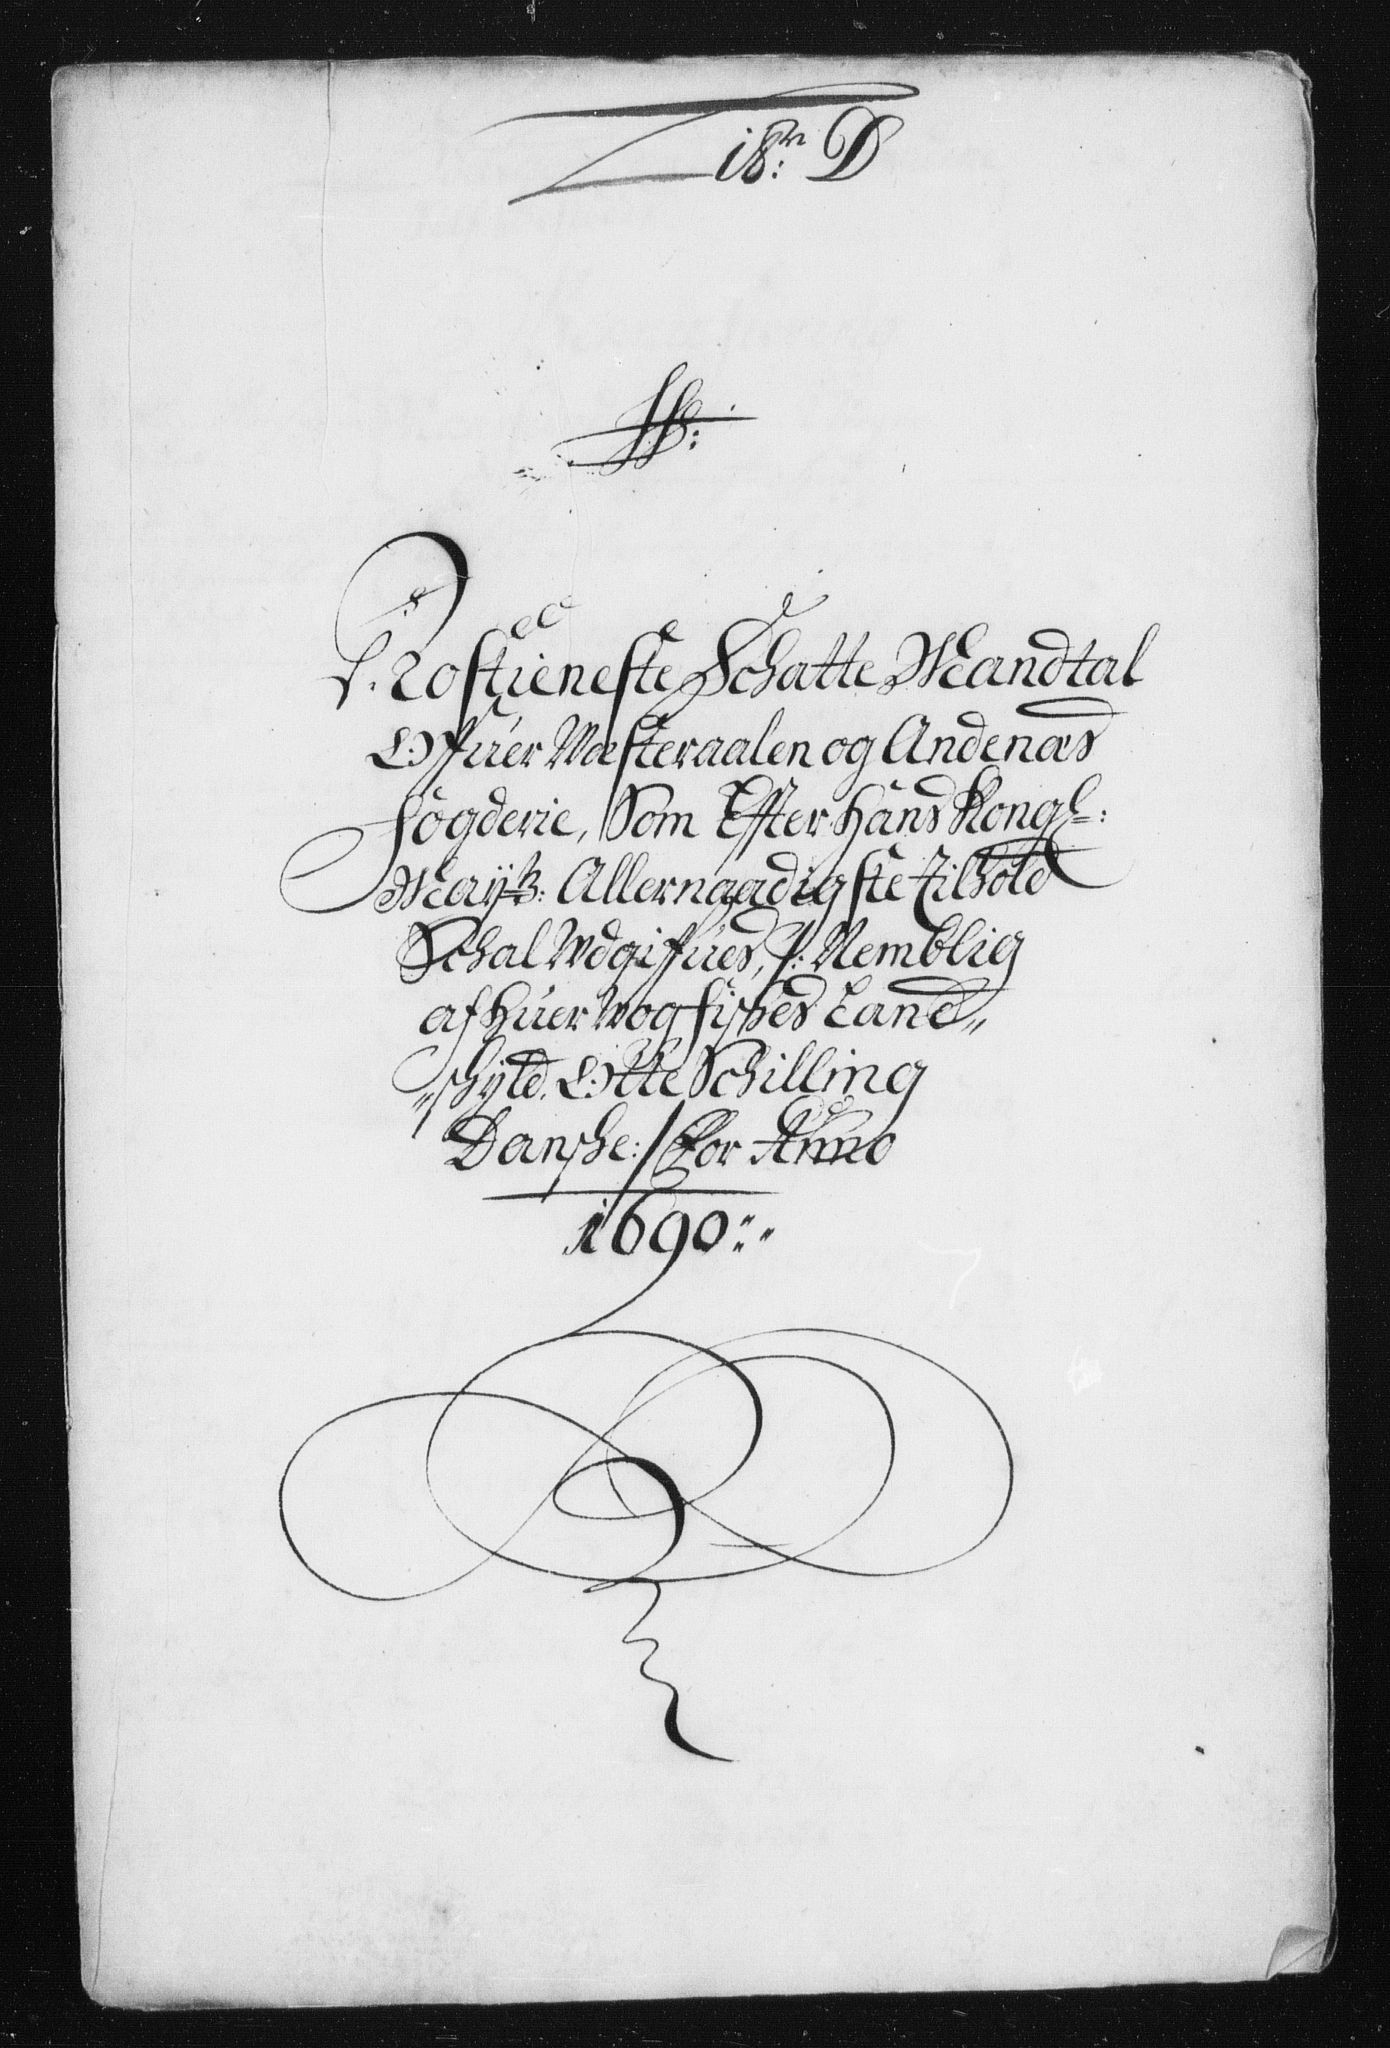 18:n D
Rostieneste Schatte Mandtal
Offuer Wæsteraalen og Andenæs
fogderie, Som Effter Hans Kongl:
Mayts: Allernaadigste tilhold
Schal Wdgiffues, /: Nemblig
af huer Wog fiskes Land„
„skyld. Otte Schilling
Danske:/ For Anno
1690:„